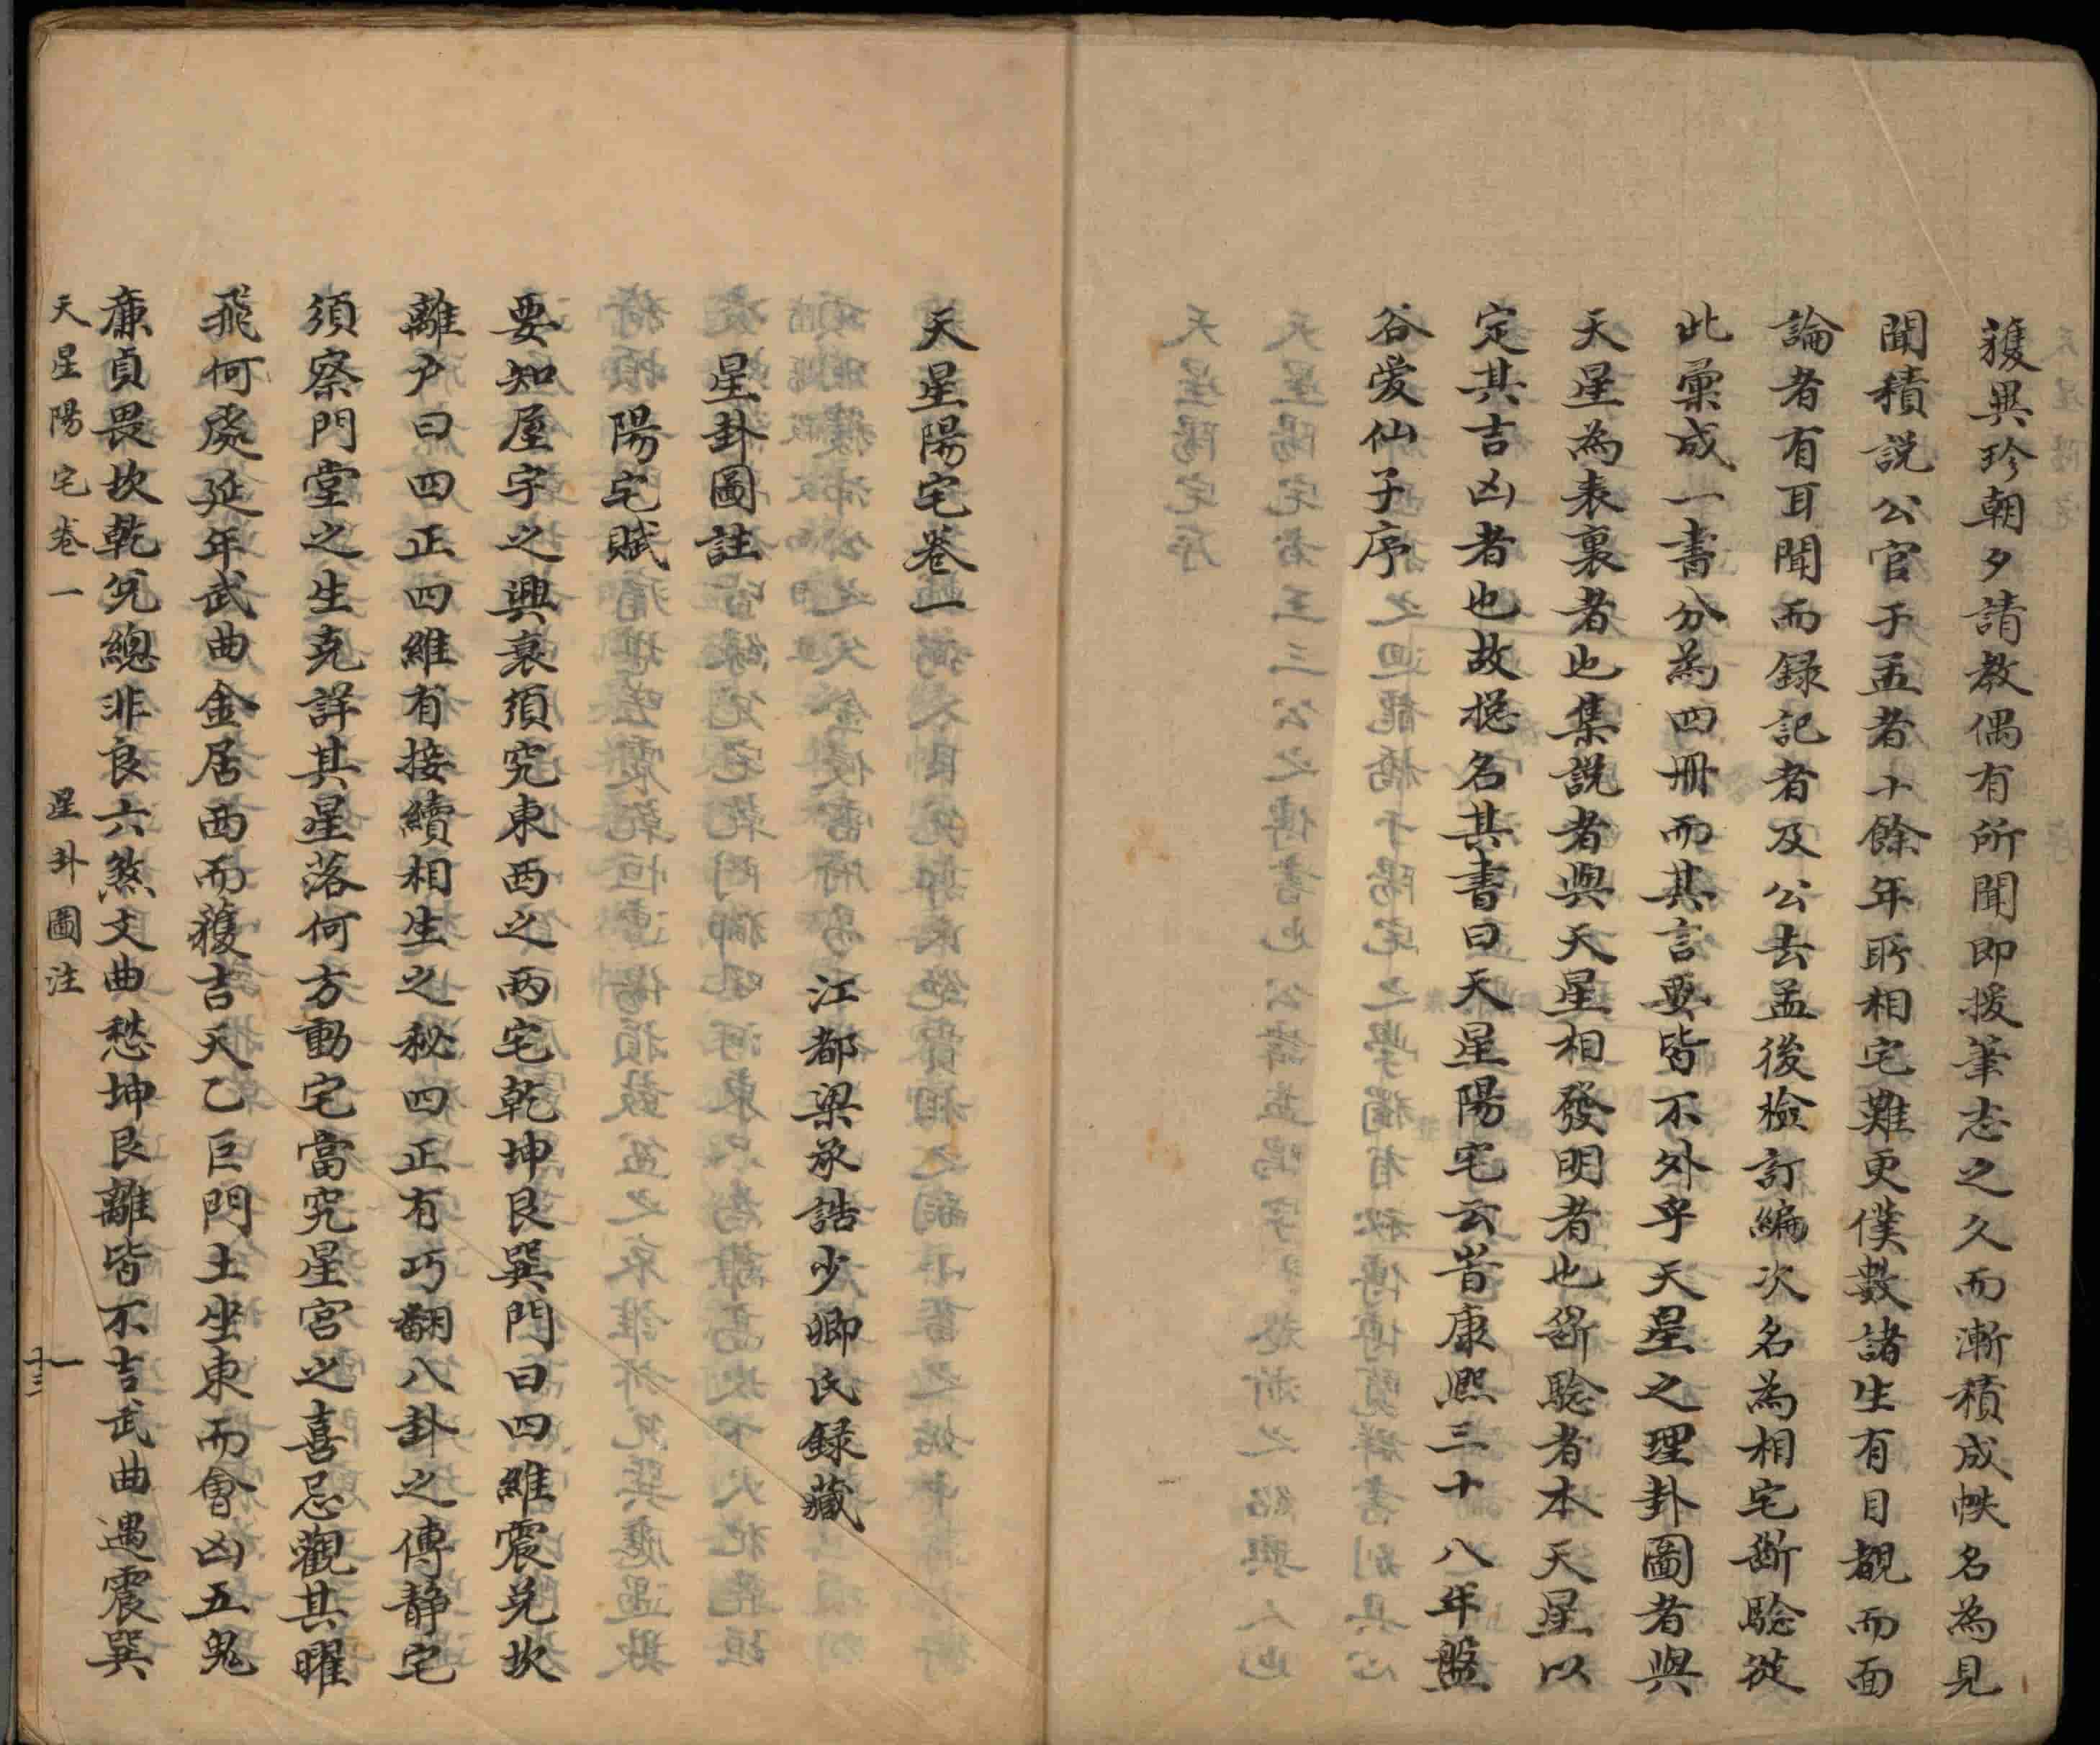 獲異珍朝夕請教偶有所聞即援筆志之久而漸積成帙名為見
聞積說公官于孟者十餘年所相宅難更僕數諸生有目覩而面
論者有耳聞而録記者及公去孟後檢訂編次名為相宅斷騐從
此彙成一書分為四冊而其言要皆不外乎天星之理卦圖者與
天星為表裏者也集説者與天星相發明者也斷騐者本天星以
定其吉凶者也故摠名其書曰天星陽宅云旹康熙三十八年盤
谷愛仙子序
天星陽宅卷一
江都梁承誥少卿氏録藏
星卦圖註
陽宅賦
要知屋宇之興衰須究東西之两宅乾坤艮巽門曰四維震兑坎
離户曰四正四維有接續相生之秘四正有巧翻八卦之傳静宅
須察門堂之生克詳其星落何方動宅當究星宫之喜忌觀其曜
飛何處延年武曲金居西而獲吉天乙巨門土坐東而會凶五鬼
廉貞畏坎乾兊總非良六煞文曲愁坤艮離皆不吉武曲遇震巽
天星陽宅卷一 星卦圖注 一
十三